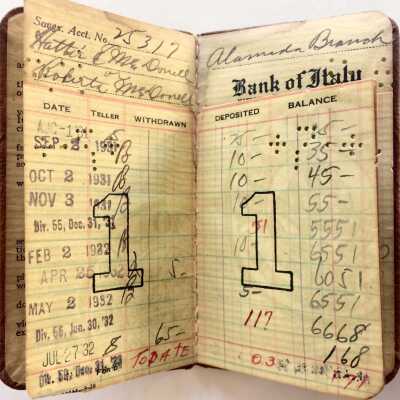 Suger. Acct. No. 25317
Hattie E McDonell
or
Roberta McDonell
DATE TELLER WITHDRAWN
SEP 2 1931 B
OCT 2 1931 B
NOV 3 1931 B
Div. 55, Dec. 31, 31
FEB 2 1932 B
APR 25 1932 5-
MAY 2 1932 B
Div. 56, Jun. 30, '32
JUL 27 '32 8 65-
Dec. 31, '32 TO DATE
1
Alameda Branch
Bank of Italy
DEPOSITED BALANCE
25-
10- 35-
10- 45-
10- 55-
51 5551
10- 6551
6051
5- 6551
117 6668
168
03
1